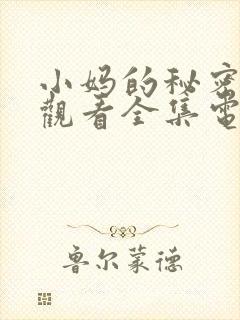 小妈的秘密
觀看全集電
鲁尔蒙德